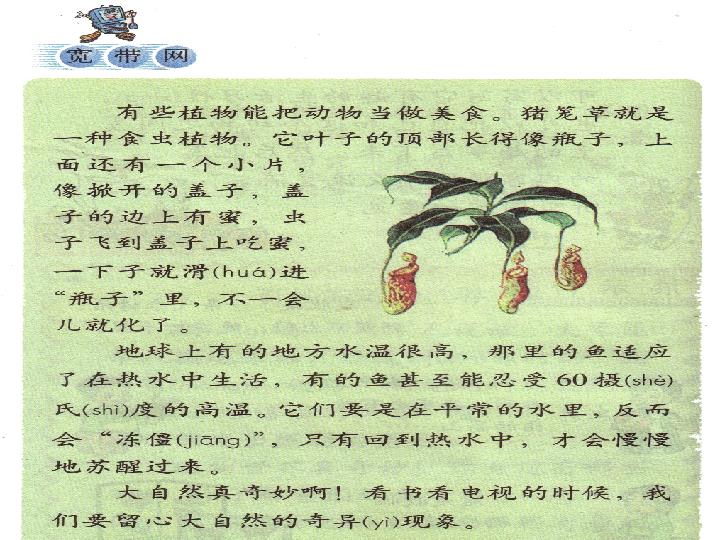 宽带网
有些植物能把动物当做美食。猪笼草就是
一种食虫植物。它叶子的顶部长得像瓶子，上
面还有一个小片，
像掀开的盖子，盖
子的边上有蜜，虫
子飞到盖子上吃蜜，
一下子就滑(huá)进
“瓶子”里，不一会
儿就化了。
地球上有的地方水温很高，那里的鱼适应
了在热水中生活，有的鱼甚至能忍受60摄(shè)
氏(shì)度的高温。它们要是在平常的水里，反而
会“冻僵(jiāng)”，只有回到热水中，才会慢慢
地苏醒过来。
大自然真奇妙啊！看书看电视的时候，我
们要留心大自然的奇异(yì)现象。